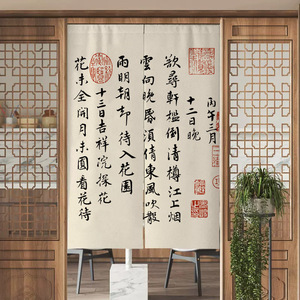 丙午三月
十二日晚
欲尋軒檻倒清樽江上烟
雲向晚昏須倩東風吹散
雨明朝却待入花園
十三日吉祥院探花
花未全開月未圓看花待